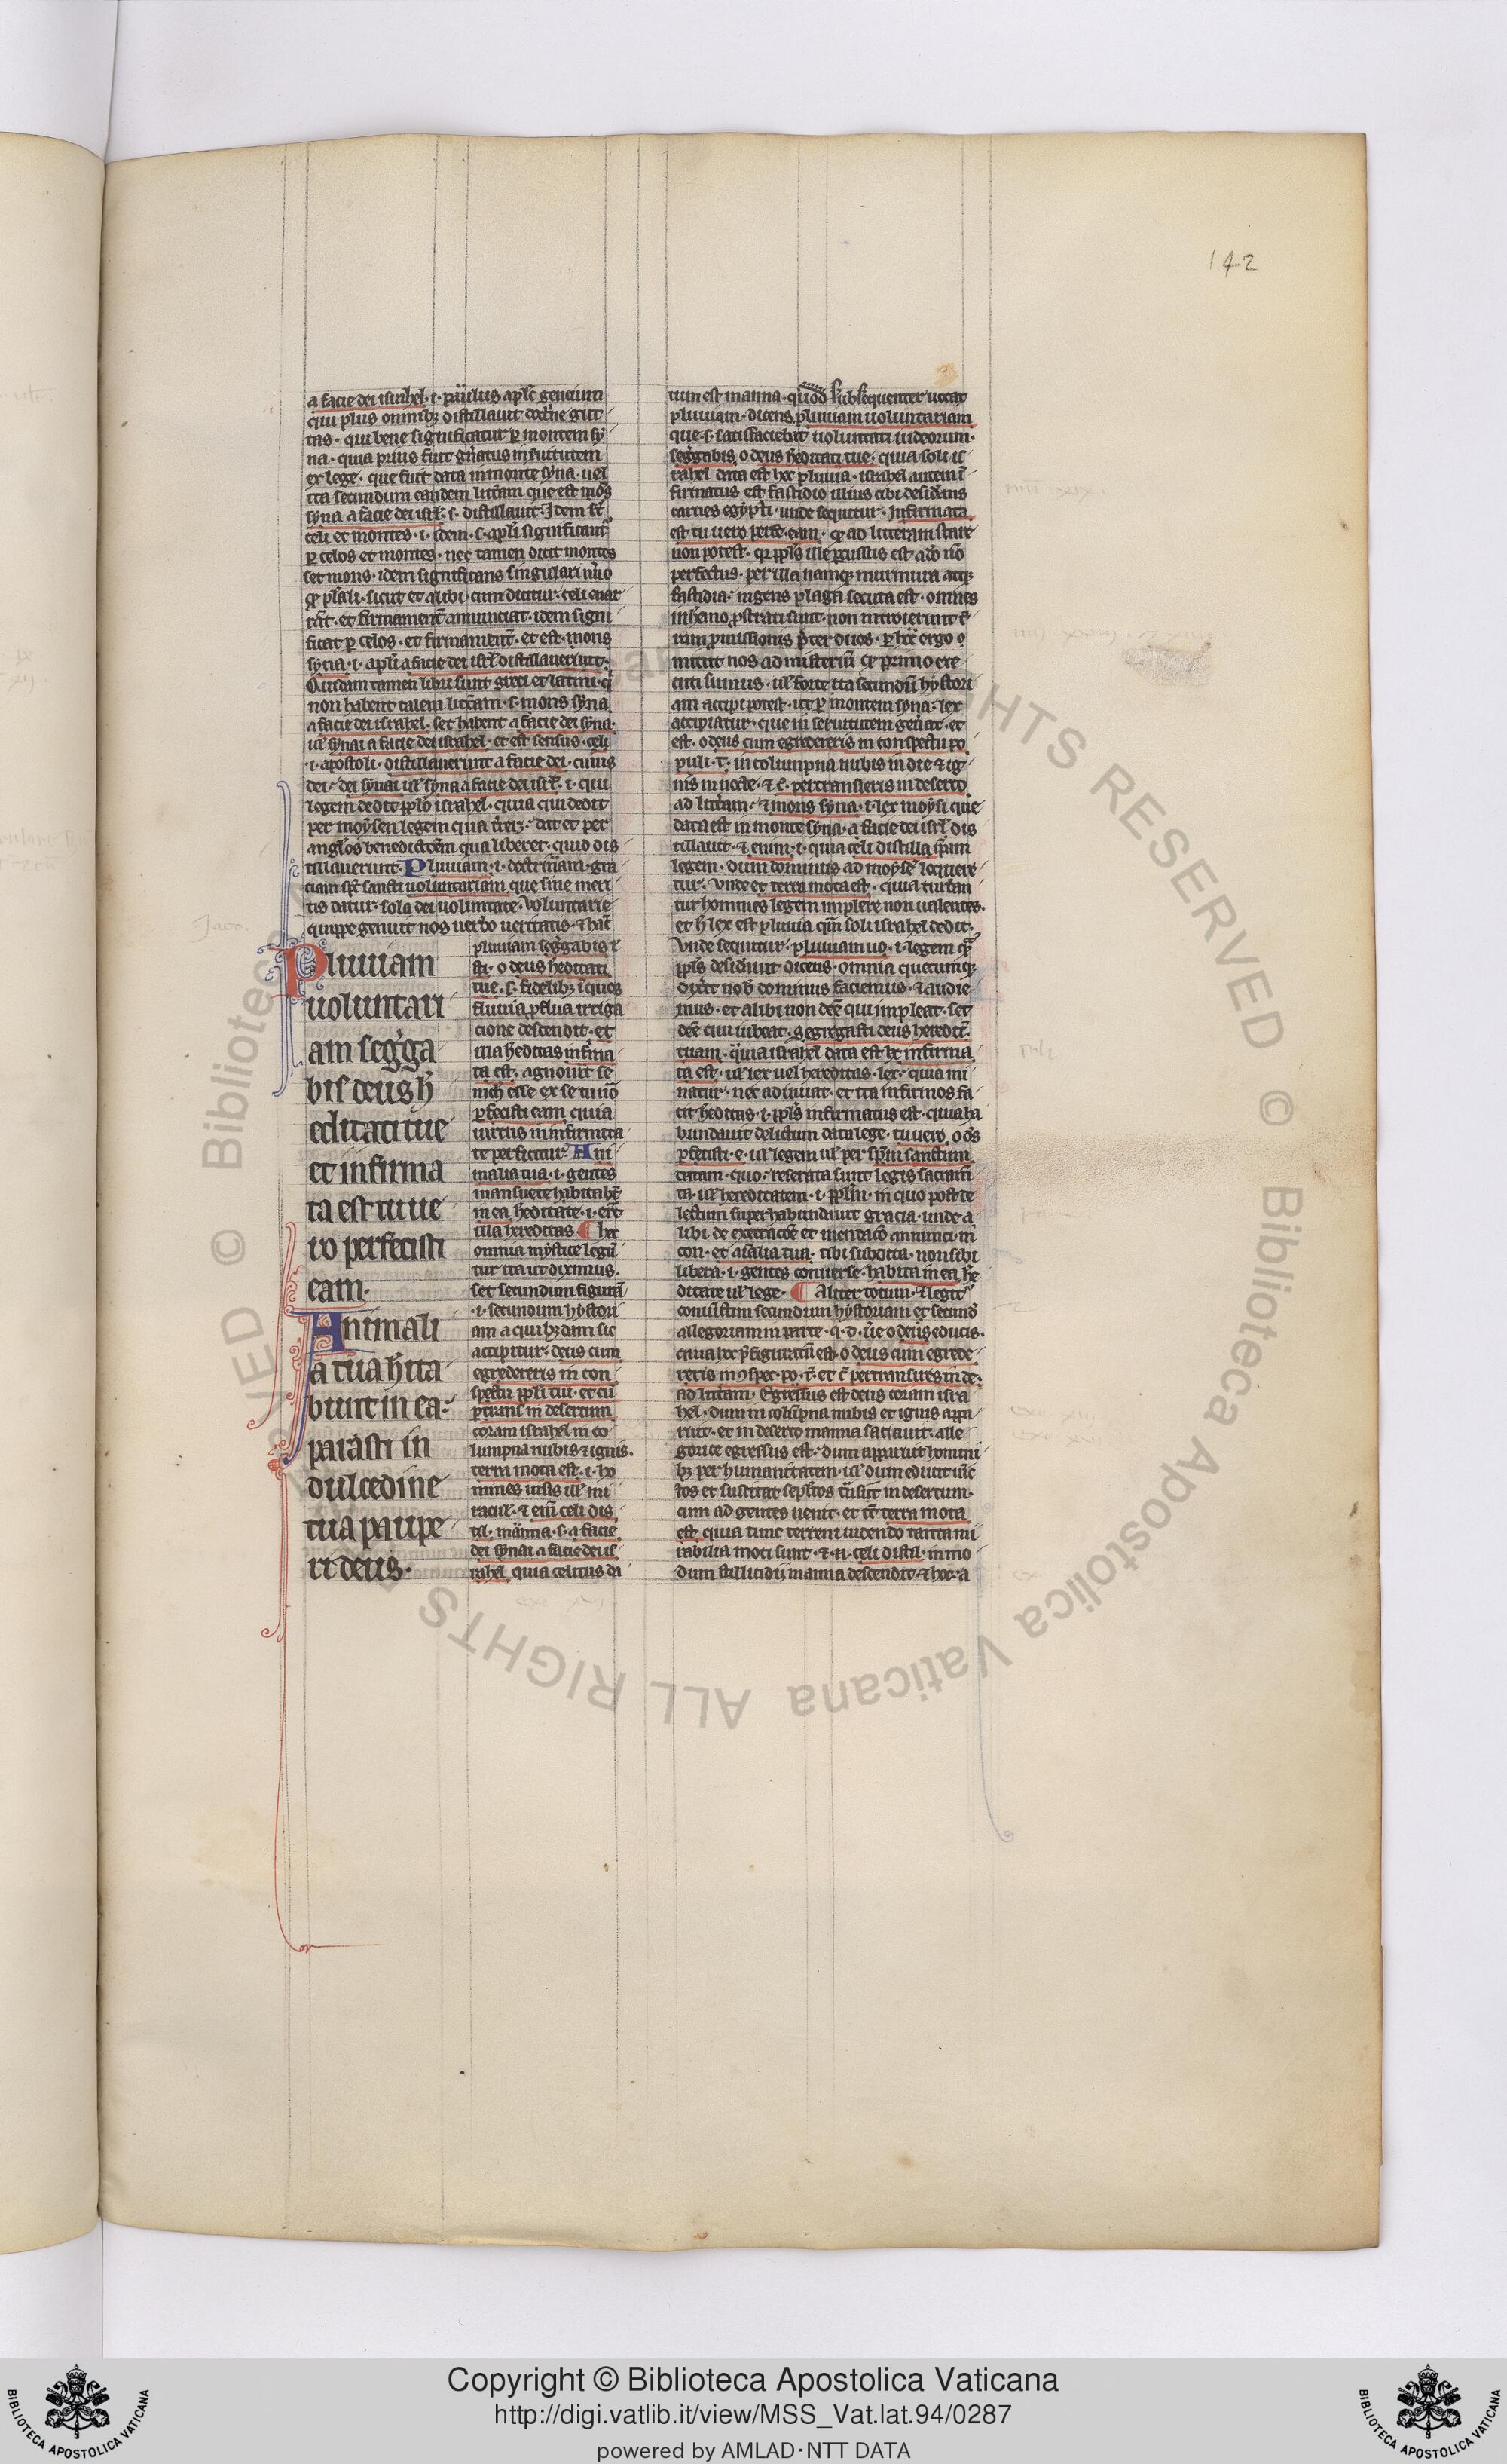 142
a facie dei israhel · i · paulus apl̃s gentium
qui plus omnibꝫ distillauit doctˀne gut
tas · qui bene significatur ꝑ montem sy
na · quia prius fuit gn̄atus in seruitutem
ex lege · que fuit data in monte syna · uel
ita secundum eandem litt̃am que est mōs
syna a facie dei isrl̃ · s · distillauit · Idem st̃
celi et montes · i · idem · s · apl̃i significant̃
ꝑ celos et montes · nec tamen dicit montes
set mons · idem significans singulari nũo
qđ pl̃ali · sicut et alibi · cum dicitur · celi enar
rãt · et firmamentũ annunciat · idem signi
ficat ꝑ celos · et firmamentũ · et est · mons
syna · i · apl̃i a facie dei isrl̃ distillauerunt ·
Quidam tamen libri sunt greci et latini · q̃
non habent talem litt̃am · s · mons syna
a facie dei israhel · set habent a facie dei syna ·
ul̃ synai a facie dei israhel · et est sensus · celi
· i · apostoli · distillauerunt a facie dei · cuius
dei · dei synai ul̃ syna a facie dei isrl̃ · i · qui
legem dedit pp̃lo israhel · quia qui dedit
per moysen legem qua t̃reꝫ · dat et per
angl̃os benedictõem qua liberet · quid dis
tillauerunt · Pluuiam · i · doctrinam · gra
ciam sp̃c sancti uoluntariam que sine meri
tis datur · sola dei uoluntate · Voluntarie
quippe genuit nos uerbo ueritatis · ⁊ hãc
Jaco.
Pluuiam
uoluntari
am segˀga
bis deus h̃
editati tue
et infirma
ta est tu ue
ro perfecisti
eam ·
Animali
a tua h̃ita
bunt in ea ·
parasti in
dulcedine
tua paupe
ri deus ·
pluuiam segˀgabis ·
sti · o deus h̃editati
tue · s · fidelibꝫ ĩ quos
fluuia ꝓflua irriga
cione descendit · et
illa h̃editas infirma
ta est · agnouit se
nichˡ esse ex se tu uõ
ꝑfecisti eam quia
uirtus in infirmita
te perficitur · Ani
malia tua · i · gentes
mansuete habitabũt
in ea h̃editate · i · erũt
illa hereditas ¶ hec
omnia mystice legũ
tur ita ut diximus ·
set secundum figurã
· i · secundum hystori
am a quibꝫdam sic
accipitur · deus cum
egredereris in con
spectu pp̃li tui · et cũ
ꝑtransˀ in desertum
coram israhel in co
lumpna nubis ⁊ ignis ·
terra mota est · i · ho
mines uisis ul̃ mi
racul̃ · ⁊ eni celi dis
til · manna · s · a facie
dei synai a facie dei is
rahel quia celitus da
tum est manna · quod subsequenter uocat
pluuiam · dicens pluuiam uoluntariam
que · s · satisfaciebat uoluntati iudeorum ·
segˀgabis o deus h̃editati tue · quia soli is
rahel data est hec pluuia · israhel autem ĩ
firmatus est fastidio illius cibi desid̃ans
carnes egypti · unde sequitur · Infirmata
est tu uero perfe · eam · qđ ad litteram stare
non potest · q̃ pp̃ls ille ꝑcussus est adeo ñ
perfectus · per illa namqꝫ murmura atqꝫ
fastidia · ingens plaga secuta est · omnes
in h̃emo ꝓstrati sunt · non introierunt t̃
ram ꝓmissionis p̃ter duos · ꝑ hec ergo o
mittit nos ad misteriũ qđ primo exe
cuti sumus · ul̃ forte ita secundũ hystori
am accipi potest · ut ꝑ montem syna · lex
accipiatur · que in seruitutem gen̄at · et
est · o deus cum egredereris in conspectu po
puli · t · in columpna nubis in die ⁊ ig
nis in nocte · ⁊ c · pertransieris in deserto
ad litt̃am · ⁊ mons syna · i · lex moysi que
data est in monte syna · a facie dei isrl̃ dis
tillauit · ⁊ enim · i · quia celi distilla sp̃am
legem · dum dominus ad moysẽ loquere
tur · Vnde et terra mota est · quia turban
tur homines legem implere non ualentes ·
et h̃ lex est pluuia qm̃ soli israhel dedit ·
Vnde sequitur · pluuiam uo · i · legem q̃
pp̃ls desid̃auit dicens · Omnia quecumqꝫ
dixit nob̃ dominus faciemus · ⁊ audie
mus · et alibi non deẽ qui impleat · set
deẽ qui iubeat · Segregasti deus heredit̃
tuam · quia israhel data est · ⁊ infirma
ta est · ul̃ lex uel hereditas · lex · quia mi
natur · nec adiuuat · et ita infirmos fa
cit h̃editas · i · pp̃ls infirmatus est · quia ha
bundauit delictum data lege · tu uero o d̃s
ꝑfecisti · e · ul̃ legem ul̃ per sp̃m sanctum
datam · quo · reserata sunt legis sacram̃
ta · ul̃ hereditatem · i · pp̃lm · in quo post de
lictum superhabundauit gracia · unde a
libi de execracõe et mendacõ annunci · in
con · et aĩalia tua · tibi subdita · non sibi
libera · i · gentes conuerse · habita in ea h̃e
ditate ul̃ lege · ¶ Aliter totum · ⁊ legit̃
coniũctim secundum hystoriam et secundũ
allegoriam in parte · q · d · ũe o deus educis ·
quia hoc p̃figuratũ est · o deus cum egrede
reris in ꝯspec · po · t̃ · et c̃ pertransires in de ·
ad litt̃am · Egressus est deus coram isra
hel · dum in colũpna nubis et ignis appa
ruit · et in deserto manna saciauit · alle
gorice egressus est · dum apparuit homini
bꝫ per humanitatem · ul̃ dum educit uĩc
tos et suscitat sepl̃tos t̃nsiit in desertum ·
cum ad gentes uenit · et tc̃ terra mota
est quia tunc terreni uidendo tanta mi
rabilia moti sunt · ⁊ · n · celi distil · in mo
dum stillicidij manna descendit · ⁊ hoc · a
Copyright © Biblioteca Apostolica Vaticana
http://digi.vatlib.it/view/MSS_Vat.lat.94/0287
powered by AMLAD·NTT DATA
BIBLIOTECA APOSTOLICA VATICANA
BIBLIOTECA APOSTOLICA VATICANA
© Biblioteca Apostolica Vaticana ALL RIGHTS RESERVED